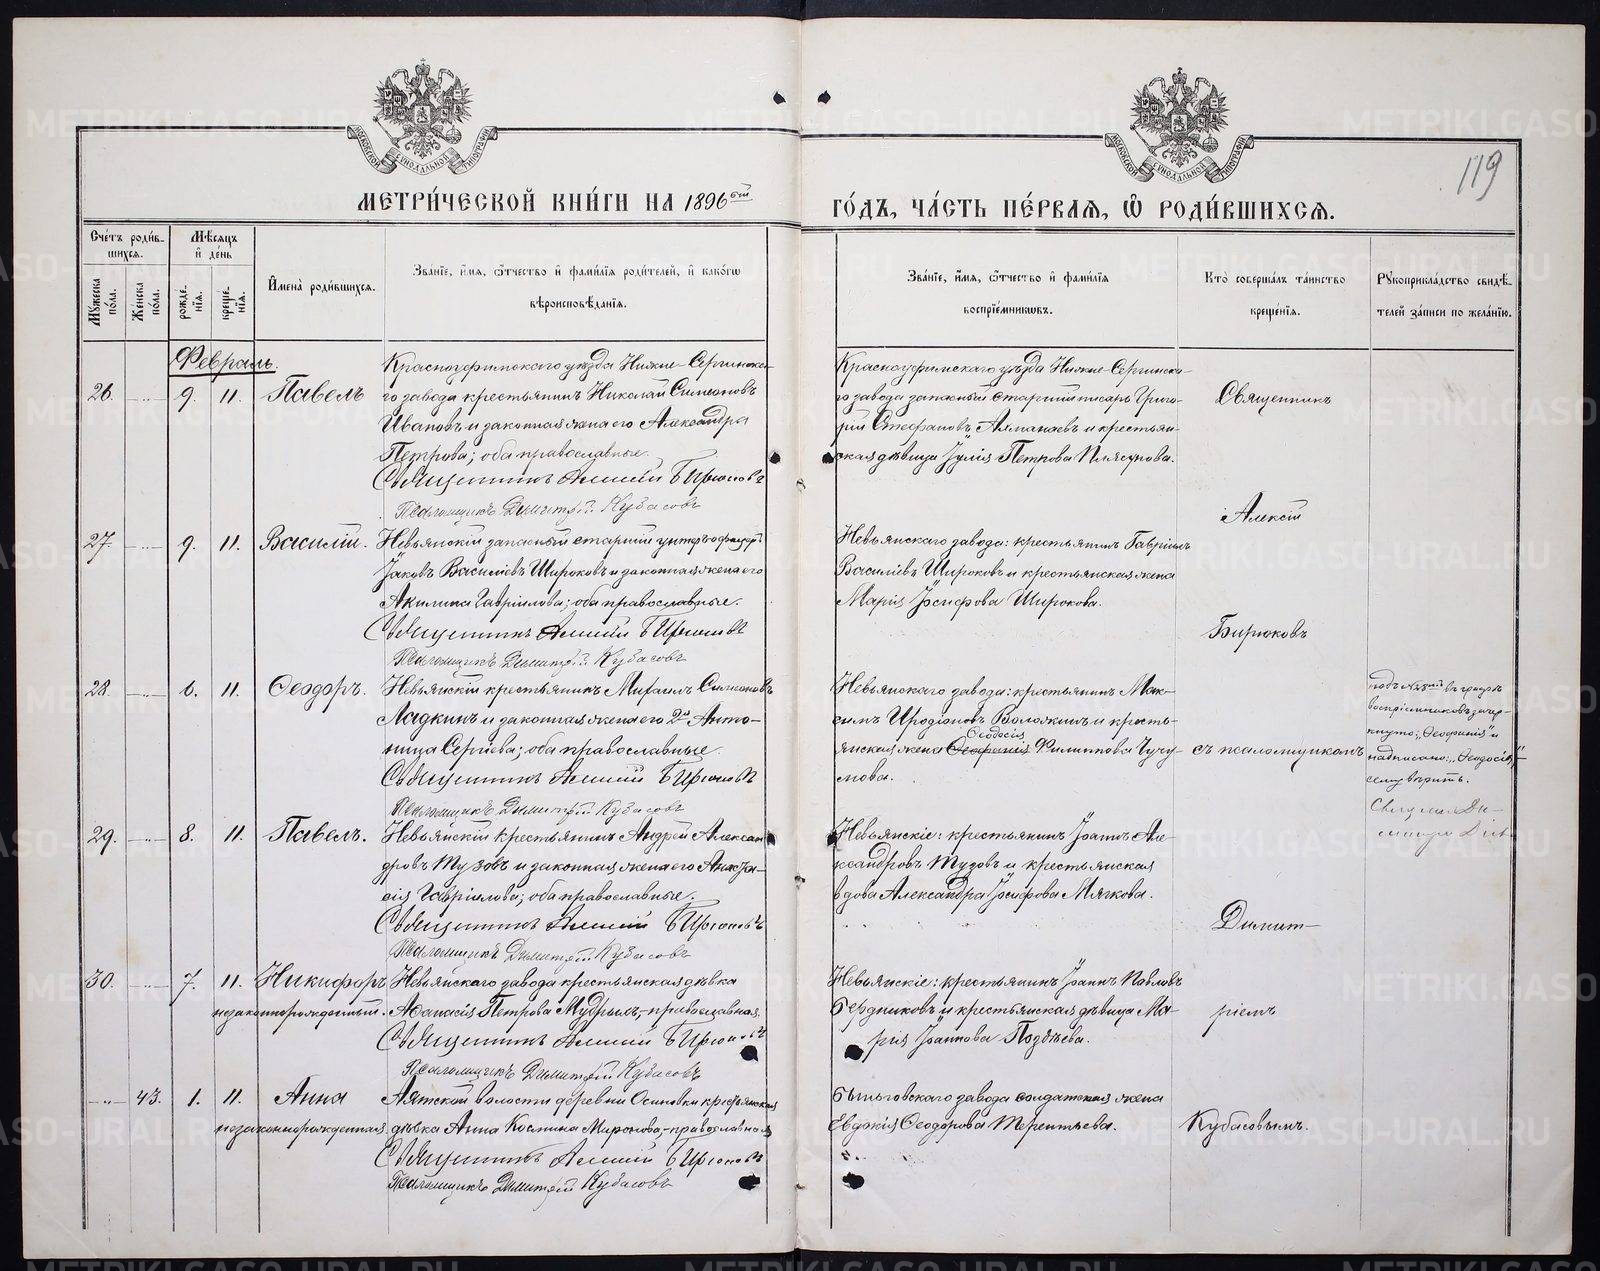 МОСКОВСКОЙ СѴНОДАЛЬНОЙ ТИПОГРАФІИ
МОСКОВСКОЙ СѴНОДАЛЬНОЙ ТИПОГРАФІИ
119
МЕТРИ́ЧЕСКОЙ КНИ́ГИ НА 1896 ой
ГО́ДЪ, ЧА́СТЬ ПЕ́РВАЯ, Ѽ РОДИ́ВШИХСЯ.
Сче́тъ роди́в-
шихся.
Мѣ́сяцъ
и҆ де́нь
Мꙋ́жеска по́ла.
Же́нска по́ла.
рожде-
нїя.
креще-
нїя.
И҆мена̀ роди́вшихся.
Зва́нїе, и҆́мя, ѻ҆́тчество и҆ фами́лїя роди́телей, и҆ како́гѡ
вѣроисповѣ́данїя.
Зва́нїе, и҆́мя, ѻ҆́тчество и҆ фами́лїя
воспрїе́мникѡвъ.
Кто̀ соверша́лъ та́инство
креще́нїя.
Рꙋкоприкла́дство свидѣ́-
телей за́писи по жела́нїю.
Февраль.
26. -..- 9. 11. Павелъ
Красноуфимскаго уѣзда Нижне-Сергинска-
го завода крестьянинъ Николай Симеоновъ
Ивановъ и законная жена его Александра
Петрова; оба православные.
Священникъ Алексій Бирюковъ
Псаломщикъ Димитрій Кубасовъ
Красноуфимскаго уѣзда Нижне-Сергинска-
го завода запасный старшій писарь Григо-
рій Стефановъ Алманаевъ и крестьян-
ская дѣвица Іулія Петрова Плясунова.
Священникъ
Алексій
27. -..- 9. 11. Василій.
Невьянскій запасный старшій унтеръ-офицеръ
Іаковъ Василіевъ Широковъ и законная жена его
Акилина Гавріилова; оба православные.
Священникъ Алексій Бирюковъ
Псаломщикъ Димитрій Кубасовъ
Невьянскаго завода: крестьянинъ Гавріилъ
Василіевъ Широковъ и крестьянская жена
Марія Іосифова Широкова.
Бирюковъ
28. -..- 6. 11. Ѳеодоръ.
Невьянскій крестьянинъ Михаилъ Симеоновъ
Ладкинъ и законная жена его 2я Анто-
нина Сергіева; оба православные.
Священникъ Алексій Бирюковъ
Псаломщикъ Димитрій Кубасовъ
Невьянскаго завода: крестьянинъ Мак-
симъ Иродіоновъ Воложинъ и кресть-
Ѳеодосія
янская жена Филиппова Чучу-
мова.
съ псаломщикомъ
подъ №28мъ въ графѣ
воспріемниковъ зачер-
кнуто: „ и
надписано: „Ѳеодосія“
сему вѣрить.
29. -..- 8. 11. Павелъ.
Невьянскій крестьянинъ Андрей Алексан-
дровъ Тузовъ и законная жена его Анаста-
сія Гавріилова; оба православные.
Священникъ Алексій Бирюковъ
Псаломщикъ Димитрій Кубасовъ
Невьянскіе: крестьянинъ Іоаннъ Але-
ксандровъ Тузовъ и крестьянская
вдова Александра Іосифова Мягкова.
Димит-
30. -..- 7. 11. Никифоръ
незаконнорожденный.
Невьянскаго завода крестьянская дѣвка
Аѳанасія Петрова Мудрыхъ,- православная.
Священникъ Алексій Бирюковъ
Псаломщикъ Димитрій Кубасовъ
Невьянскіе: крестьянинъ Іоаннъ Павловъ
Бердниковъ и крестьянская дѣвица Ма-
рія Іоаннова Поздѣева.
ріемъ
-..- 43. 1. 11. Анна
незаконнорожденная
Аятской волости деревни Осиновки крестьянская
дѣвка Анна Космина Миронова,- православная
Священникъ Алексій Бирюковъ
Псаломщикъ Димитрій Кубасовъ
Быньговскаго завода солдатская жена
Евдокія Ѳеодорова Терентьева.
Кубасовымъ.
METRIKI.GASO-URAL.RU